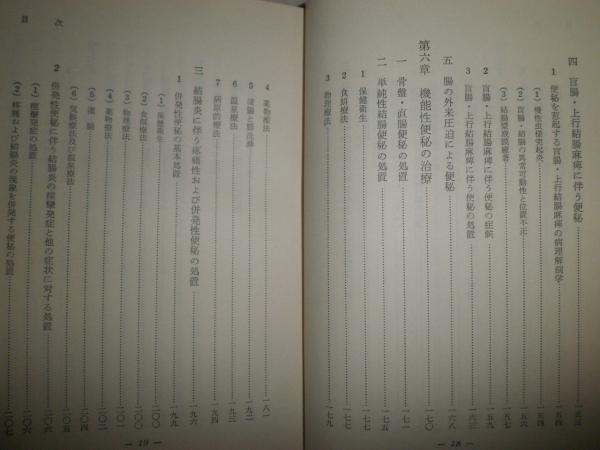 四 盲腸・上行結腸麻痺に伴う便秘……一五三
1 便秘を惹起する盲腸・上行結腸麻痺の病理解剖学……一五四
(1) 慢性虫様突起炎……一五四
(2) 盲腸・結腸の異常可動性と位置不正
(3) 結腸壁皮膜癒着
2 盲腸・上行結腸麻痺に伴う便秘の症候
3 盲腸・上行結腸麻痺に伴う便秘の処置……一六三
五 腸の外来圧迫による便秘……一六八
第六章 機能性便秘の治療……一七〇
一 骨盤・直腸便秘の処置……一七一
二 単純性結腸便秘の処置……一七七
1 保健衛生……一七七
2 食餌療法
3 物理療法……一七九
— 18 —
目次
4 薬物療法……一八一
5 灌腸と腸洗滌……一九二
6 温泉療法……一九三
7 病原的療法……一九四
三 結腸炎に伴う疼痛性および併発性便秘の処置……一九六
1 併発性便秘の基本処置……一九九
(1) 保健衛生……二〇〇
(2) 食餌療法……二〇〇
(3) 物理療法
(4) 薬物療法
(5) 灌腸……二〇四
(6) 気候療法及び温泉療法……二〇五
2 併発性便秘に伴う結腸炎の痙攣発症と他の症状に対する処置……二〇六
(1) 痙攣発症の処置……二〇六
(2) 下痢および結腸炎の現象を併発する便秘の処置……二〇七
— 19 —